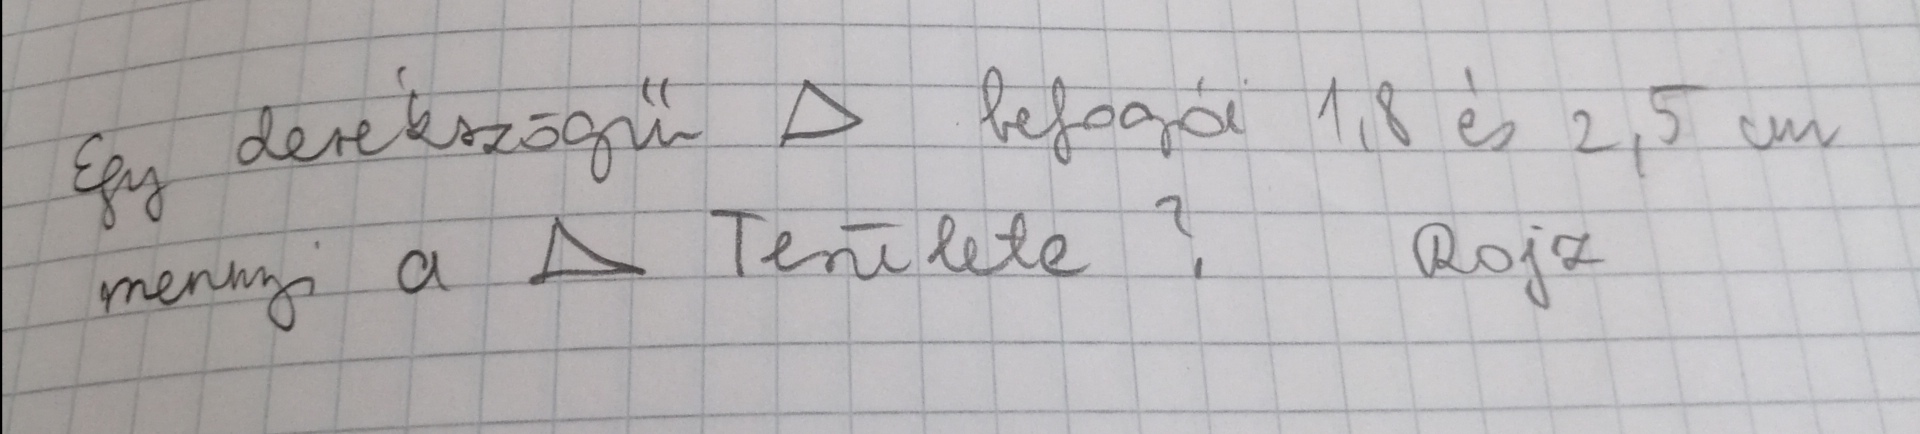 Egy derékszögű △ befogói 1,8 és 2,5 cm
mennyi a △ Területe? Rajz